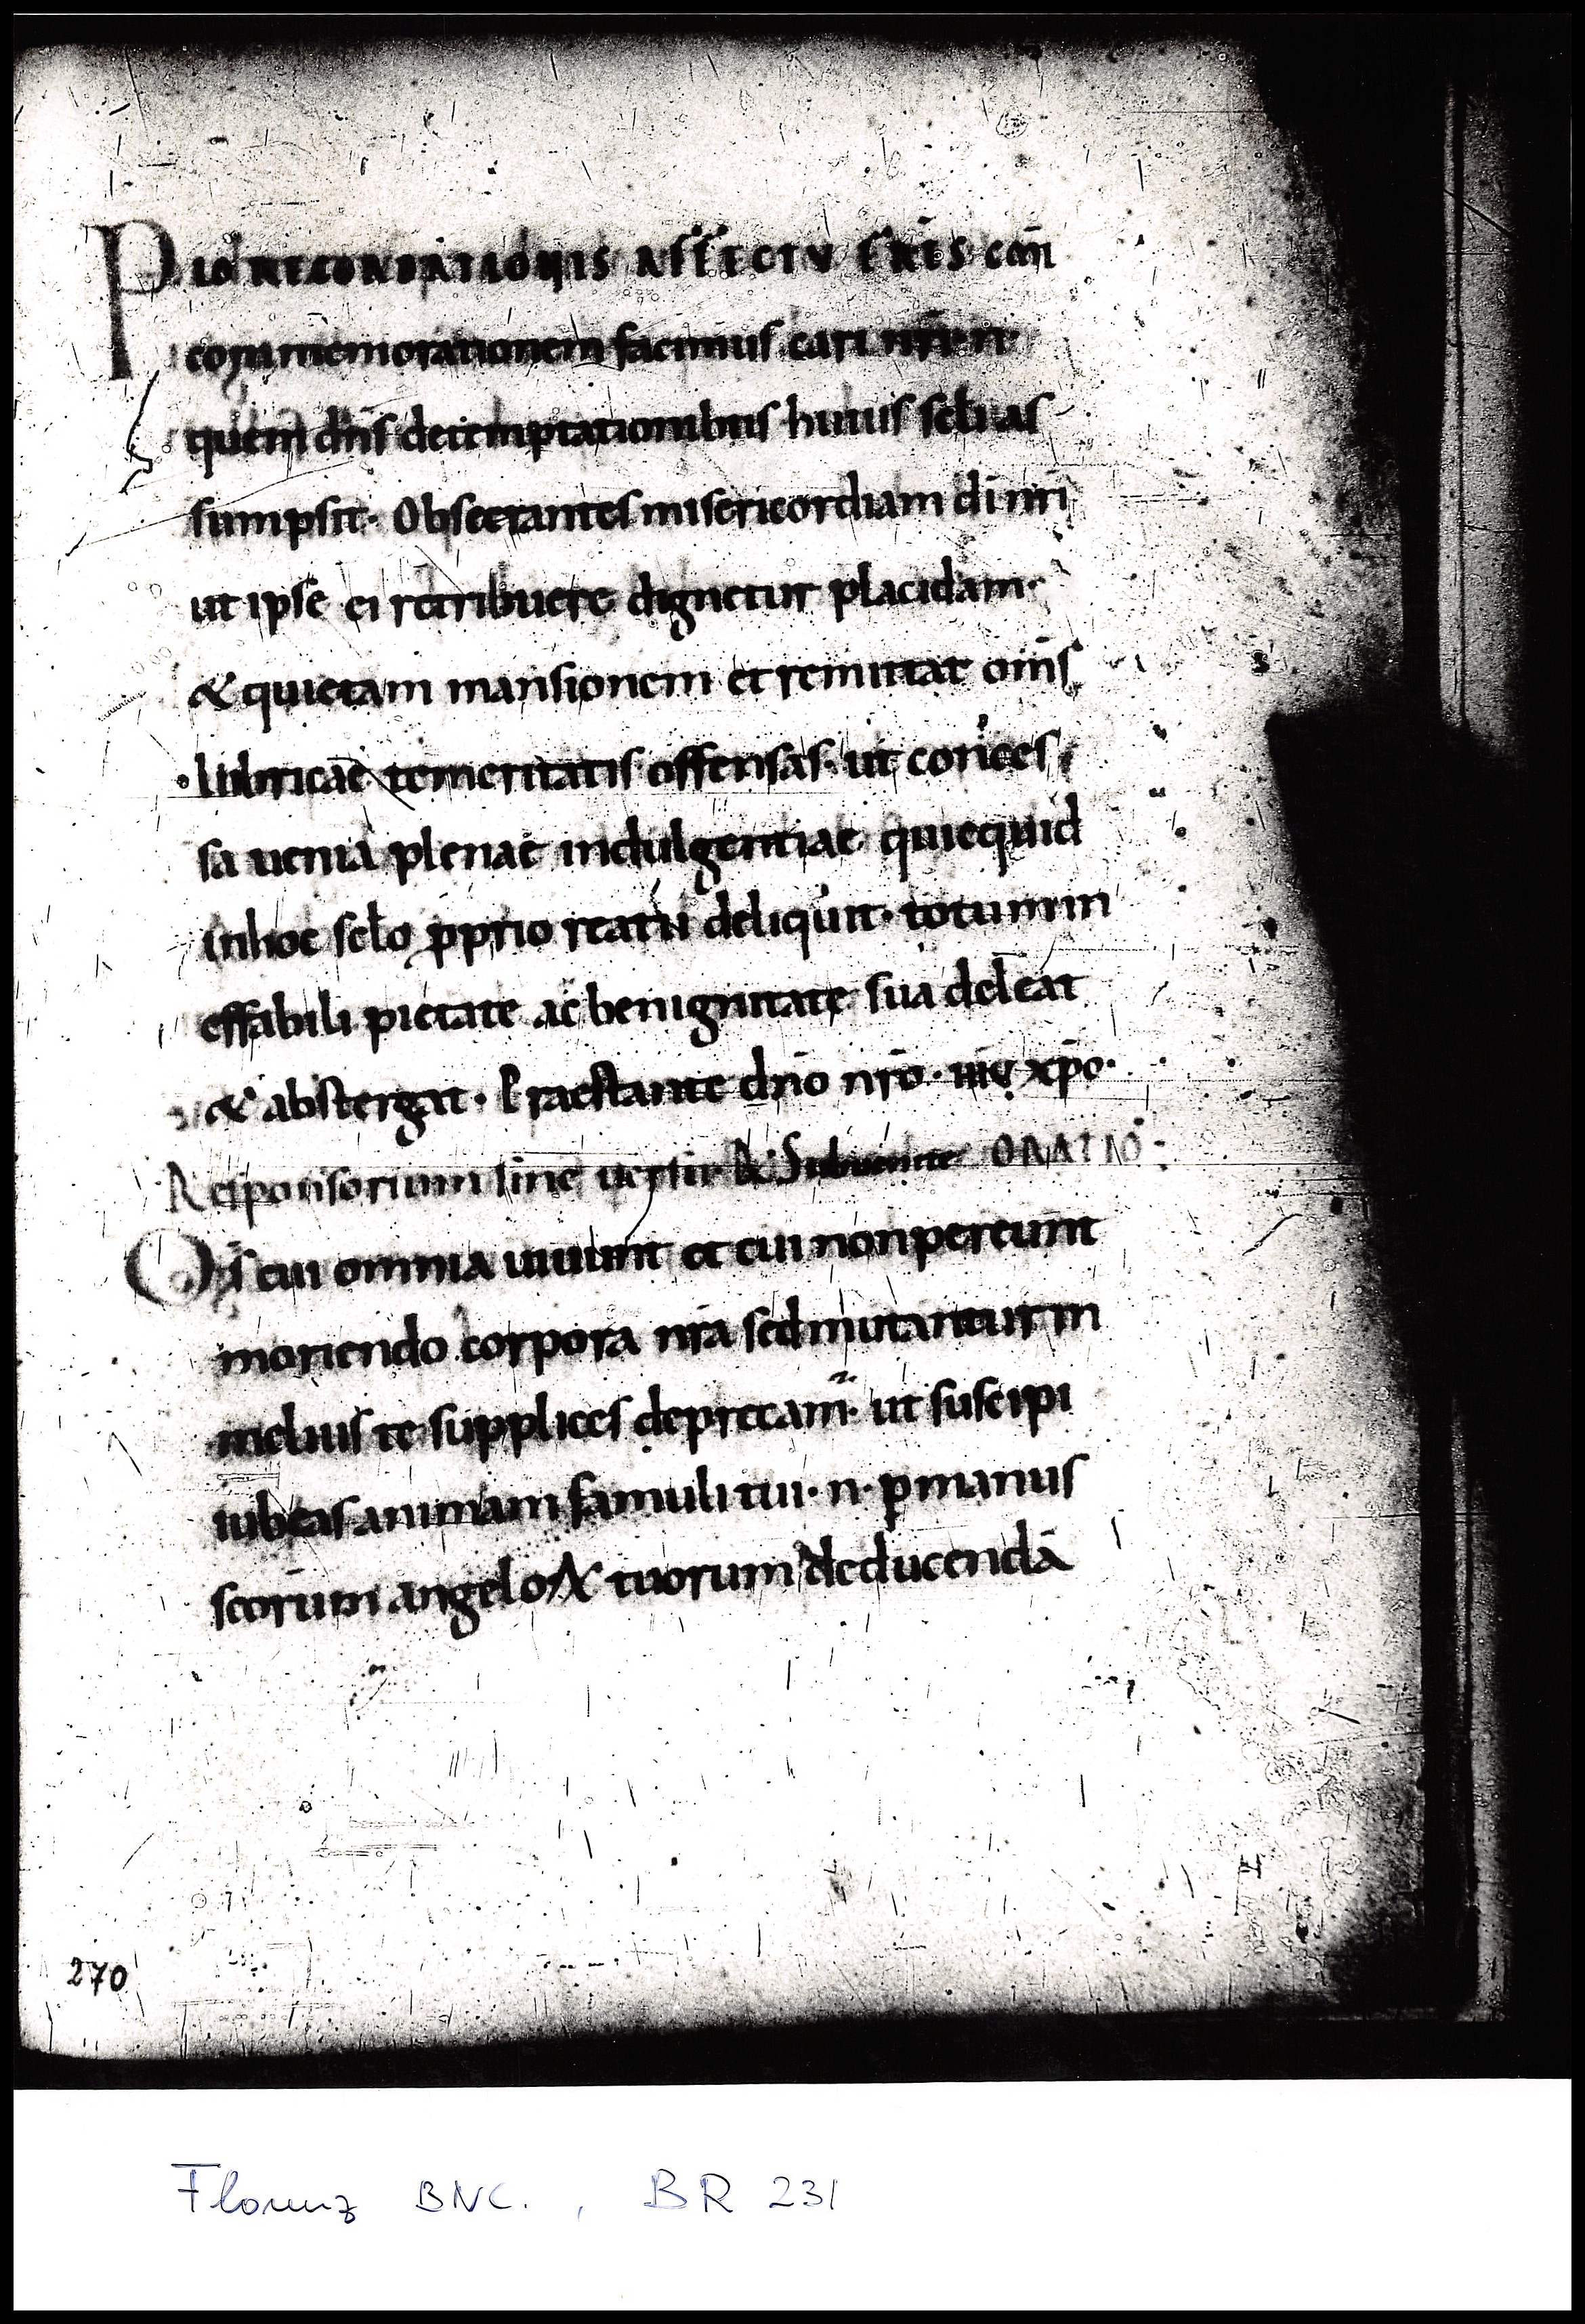 PIO RECORDATIONIS AFFECTU FR̄ES com̄
commemorationem facimus cari nr̄i·n·
quem dn̄s detemptationibus huius scl̄i as
sumpsit· Obsecrantes misericordiam dī nr̄i
ut ipse ei retribuere dignetur placidam·
& quietam mansionem et remittat om̄s
lubricae temeritatis offensas· ut conces
sa uenia plenae indulgentiae quicquid
inhoc scl̄o ꝓprio reatu deliquit· totum in
effabili pietate ac benignitate sua deleat
& abstergat· Praestante dn̄o nr̄o· ihū xp̄o·
Responsorium sine uersu R Subuenite ORATIO
Dš cui omnia uiuunt et cui non pereunt
moriendo corpora nr̄a sed mutantur in
melius te supplices deprecam̄· ut suscipi
iubeas animam famuli tui· n· ꝑ manus
scōrum angeloꝝ tuorum deducendā
270
Florenz BNC., BR 231